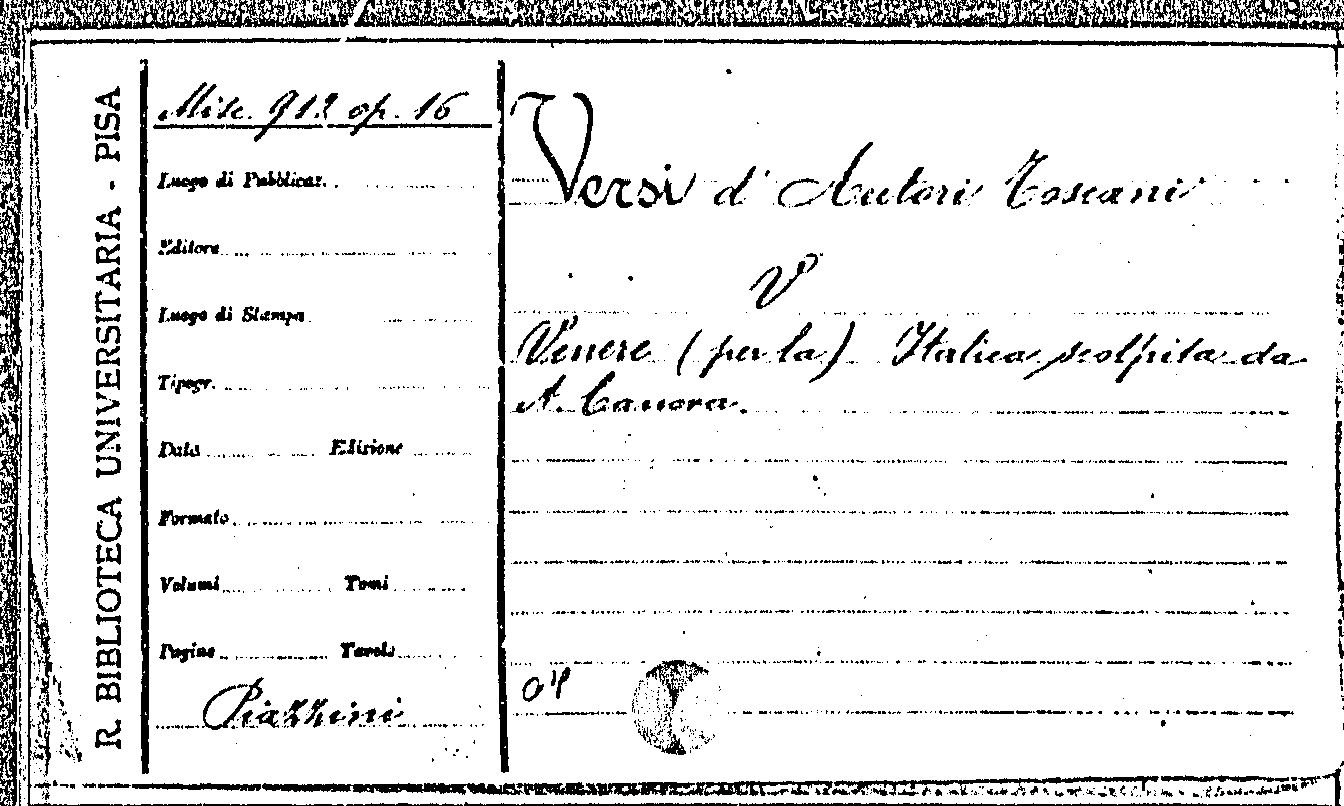 R. BIBLIOTECA UNIVERSITARIA - PISA
Misc. 912 op. 16
Luogo di Pubblicaz.
Editore
Luogo di Stampa
Tipogr.
Data Edizione
Formato
Volumi Tomi
Pagine Tavole
Piazzini
Versi d' Autori Toscani
V
Venere (per la) Italica scolpita da
A. Canova.